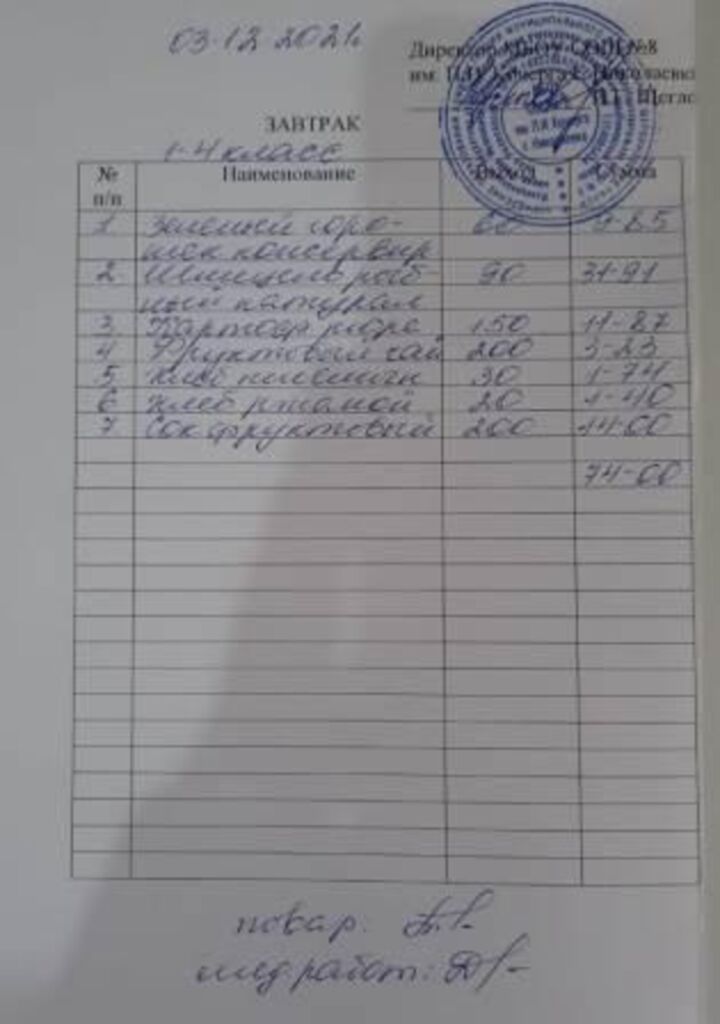 03-12 2021г.
Директор МБОУ СОШ №8
им.
Щегло
ЗАВТРАК
1-4 класс
№ п/п Наименование Выход Сумма
1 Зеленый горо- 60 9-85
шек консервир
2 Шницель рыб- 90 31-91
ный натурал
3 Картоф пюре 150 11-87
4 Фруктовый чай 200 3-23
5 хлеб пшеничн 30 1-74
6 хлеб ржаной 20 1-40
7 Сок фруктовый 200 14-00
74-00
повар:
мед работ: